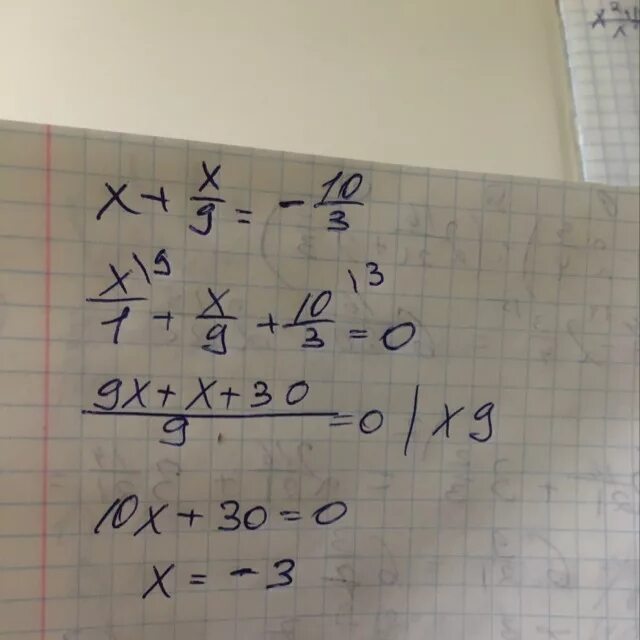 x + x/9 = - 10/3
x\9/1 + x/9 + 10\3/3 = 0
9x + x + 30/9 = 0 | x 9
10x + 30 = 0
x = - 3